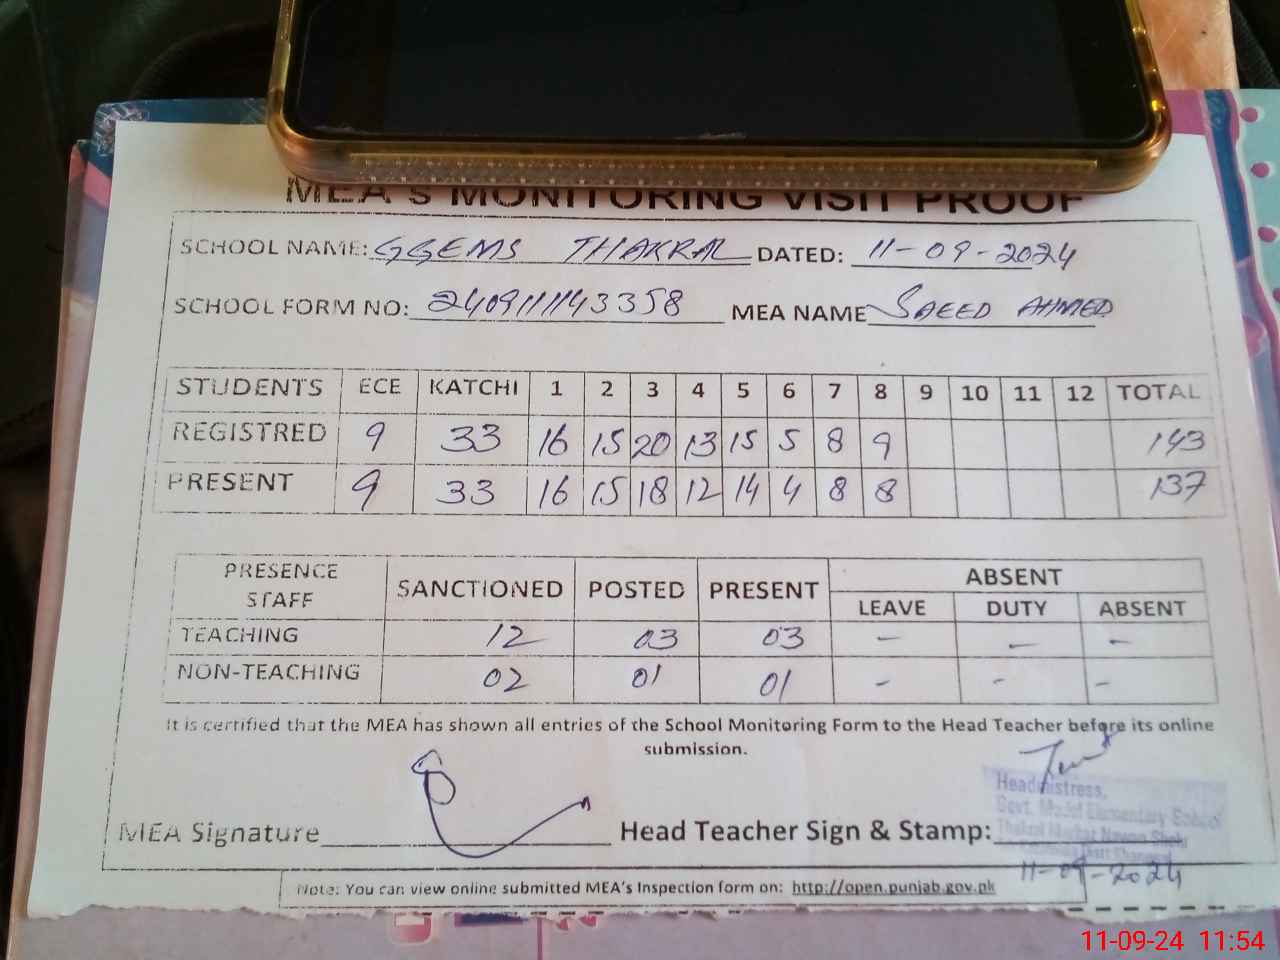 MEA's MONITORING VISIT PROOF
SCHOOL NAME: GGEMS THAKRAL DATED: 11-09-2024
SCHOOL FORM NO: 240911143358 MEA NAME SAEED AHMED
STUDENTS ECE KATCHI 1 2 3 4 5 6 7 8 9 10 11 12 TOTAL
REGISTRED 9 33 16 15 20 13 15 5 8 9 143
PRESENT 9 33 16 15 18 12 14 4 8 8 137
PRESENCE STAFF SANCTIONED POSTED PRESENT ABSENT
LEAVE DUTY ABSENT
TEACHING 12 03 03 - - -
NON-TEACHING 02 01 01 - - -
It is certified that the MEA has shown all entries of the School Monitoring Form to the Head Teacher before its online
submission.
Headmistress,
Govt. Model Elementary School
MEA Signature Head Teacher Sign & Stamp:
11-09-2024
Note: You can view online submitted MEA's Inspection form on: http://open.punjab.gov.pk
11-09-24 11:54